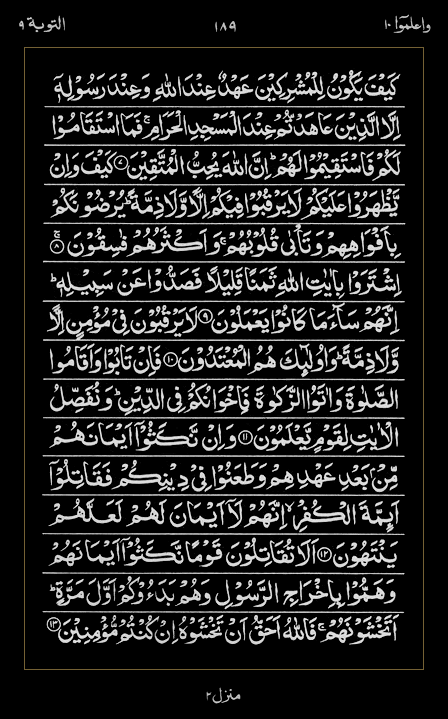 واعلموا ١٠ ١٨٩ التوبة ٩
كَيْفَ يَكُوْنُ لِلْمُشْرِكِيْنَ عَهْدٌ عِنْدَ اللهِ وَعِنْدَ رَسُوْلِهٖۤ
اِلَّا الَّذِيْنَ عَاهَدْتُّمْ عِنْدَ الْمَسْجِدِ الْحَرَامِ ۚ فَمَا اسْتَقَامُوْا
لَكُمْ فَاسْتَقِيْمُوْا لَهُمْ ؕ اِنَّ اللهَ يُحِبُّ الْمُتَّقِيْنَ ﴿۷﴾ كَيْفَ وَاِنْ
يَّظْهَرُوْا عَلَيْكُمْ لَا يَرْقُبُوْا فِيْكُمْ اِلًّا وَّلَا ذِمَّةً ؕ يُرْضُوْنَكُمْ
بِاَفْوَاهِهِمْ وَتَاْبٰى قُلُوْبُهُمْ ۚ وَاَكْثَرُهُمْ فٰسِقُوْنَ ۚ ﴿۸﴾
اِشْتَرَوْا بِاٰيٰتِ اللهِ ثَمَنًا قَلِيْلًا فَصَدُّوْا عَنْ سَبِيْلِهٖ ؕ
اِنَّهُمْ سَآءَ مَا كَانُوْا يَعْمَلُوْنَ ﴿۹﴾ لَا يَرْقُبُوْنَ فِيْ مُؤْمِنٍ اِلًّا
وَّلَا ذِمَّةً ؕ وَاُولٰٓئِكَ هُمُ الْمُعْتَدُوْنَ ﴿۱۰﴾ فَاِنْ تَابُوْا وَاَقَامُوا
الصَّلٰوةَ وَاٰتَوُا الزَّكٰوةَ فَاِخْوَانُكُمْ فِي الدِّيْنِ ؕ وَنُفَصِّلُ
الْاٰيٰتِ لِقَوْمٍ يَّعْلَمُوْنَ ﴿۱۱﴾ وَاِنْ نَّكَثُوْۤا اَيْمَانَهُمْ
مِّنْۢ بَعْدِ عَهْدِهِمْ وَطَعَنُوْا فِيْ دِيْنِكُمْ فَقَاتِلُوْۤا
اَئِمَّةَ الْكُفْرِ ۙ اِنَّهُمْ لَاۤ اَيْمَانَ لَهُمْ لَعَلَّهُمْ
يَنْتَهُوْنَ ﴿۱۲﴾ اَلَا تُقَاتِلُوْنَ قَوْمًا نَّكَثُوْۤا اَيْمَانَهُمْ
وَهَمُّوْا بِاِخْرَاجِ الرَّسُوْلِ وَهُمْ بَدَءُوْكُمْ اَوَّلَ مَرَّةٍ ؕ
اَتَخْشَوْنَهُمْ ۚ فَاللهُ اَحَقُّ اَنْ تَخْشَوْهُ اِنْ كُنْتُمْ مُّؤْمِنِيْنَ ﴿۱۳﴾
منزل ٢